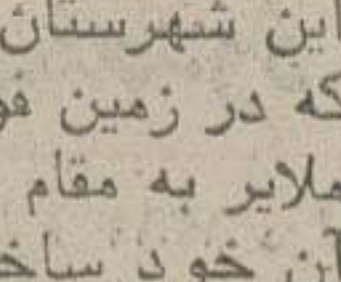 این شهرستان
که در زمین فو
ملایر به مقام
آن خود ساخ